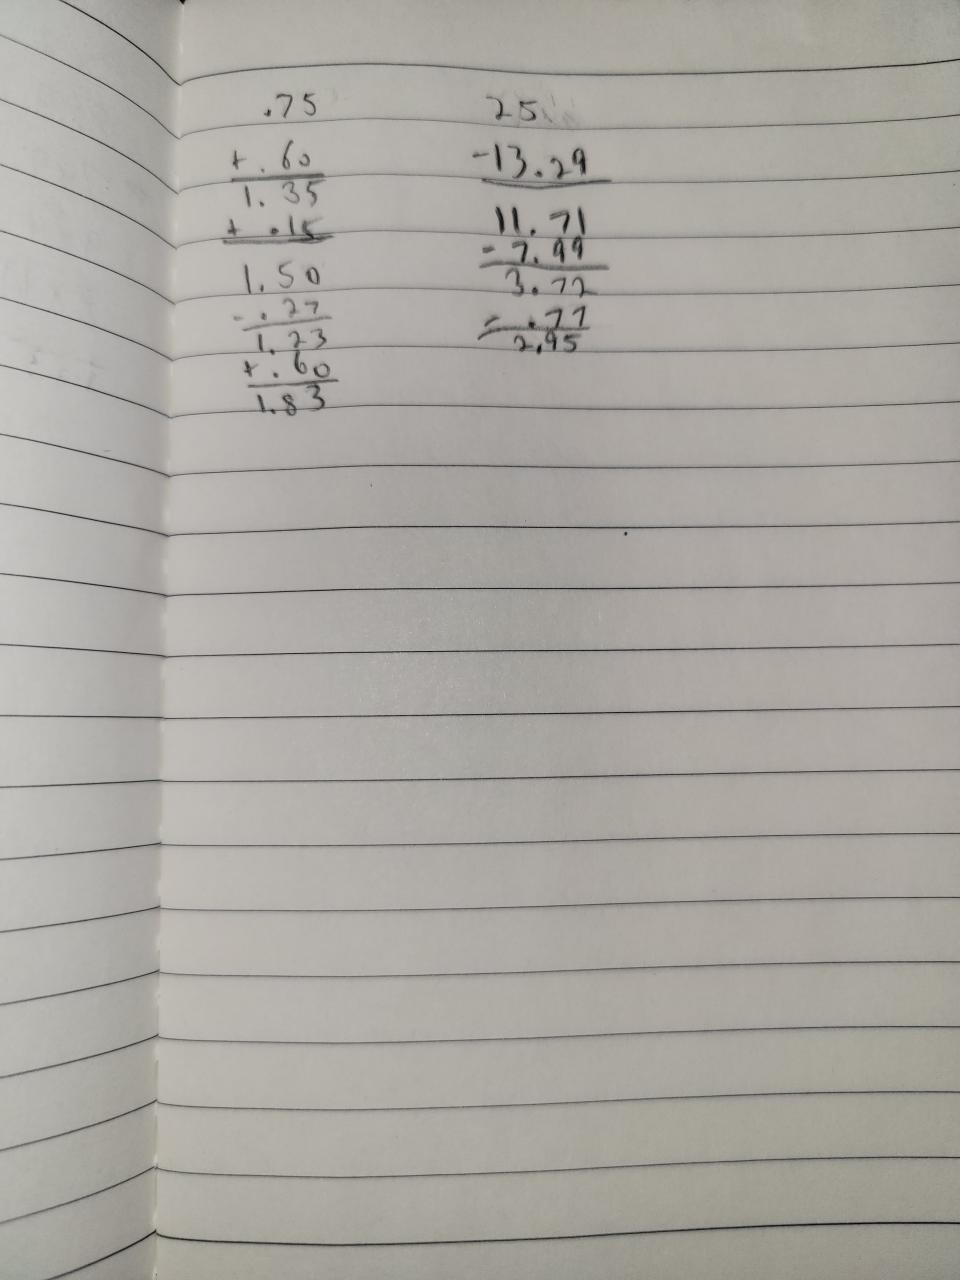 .75
+ .60
1.35
+ .15
1.50
- .27
1.23
+ .60
1.83
25
-13.29
11.71
- 7.99
3.72
- .77
2.95